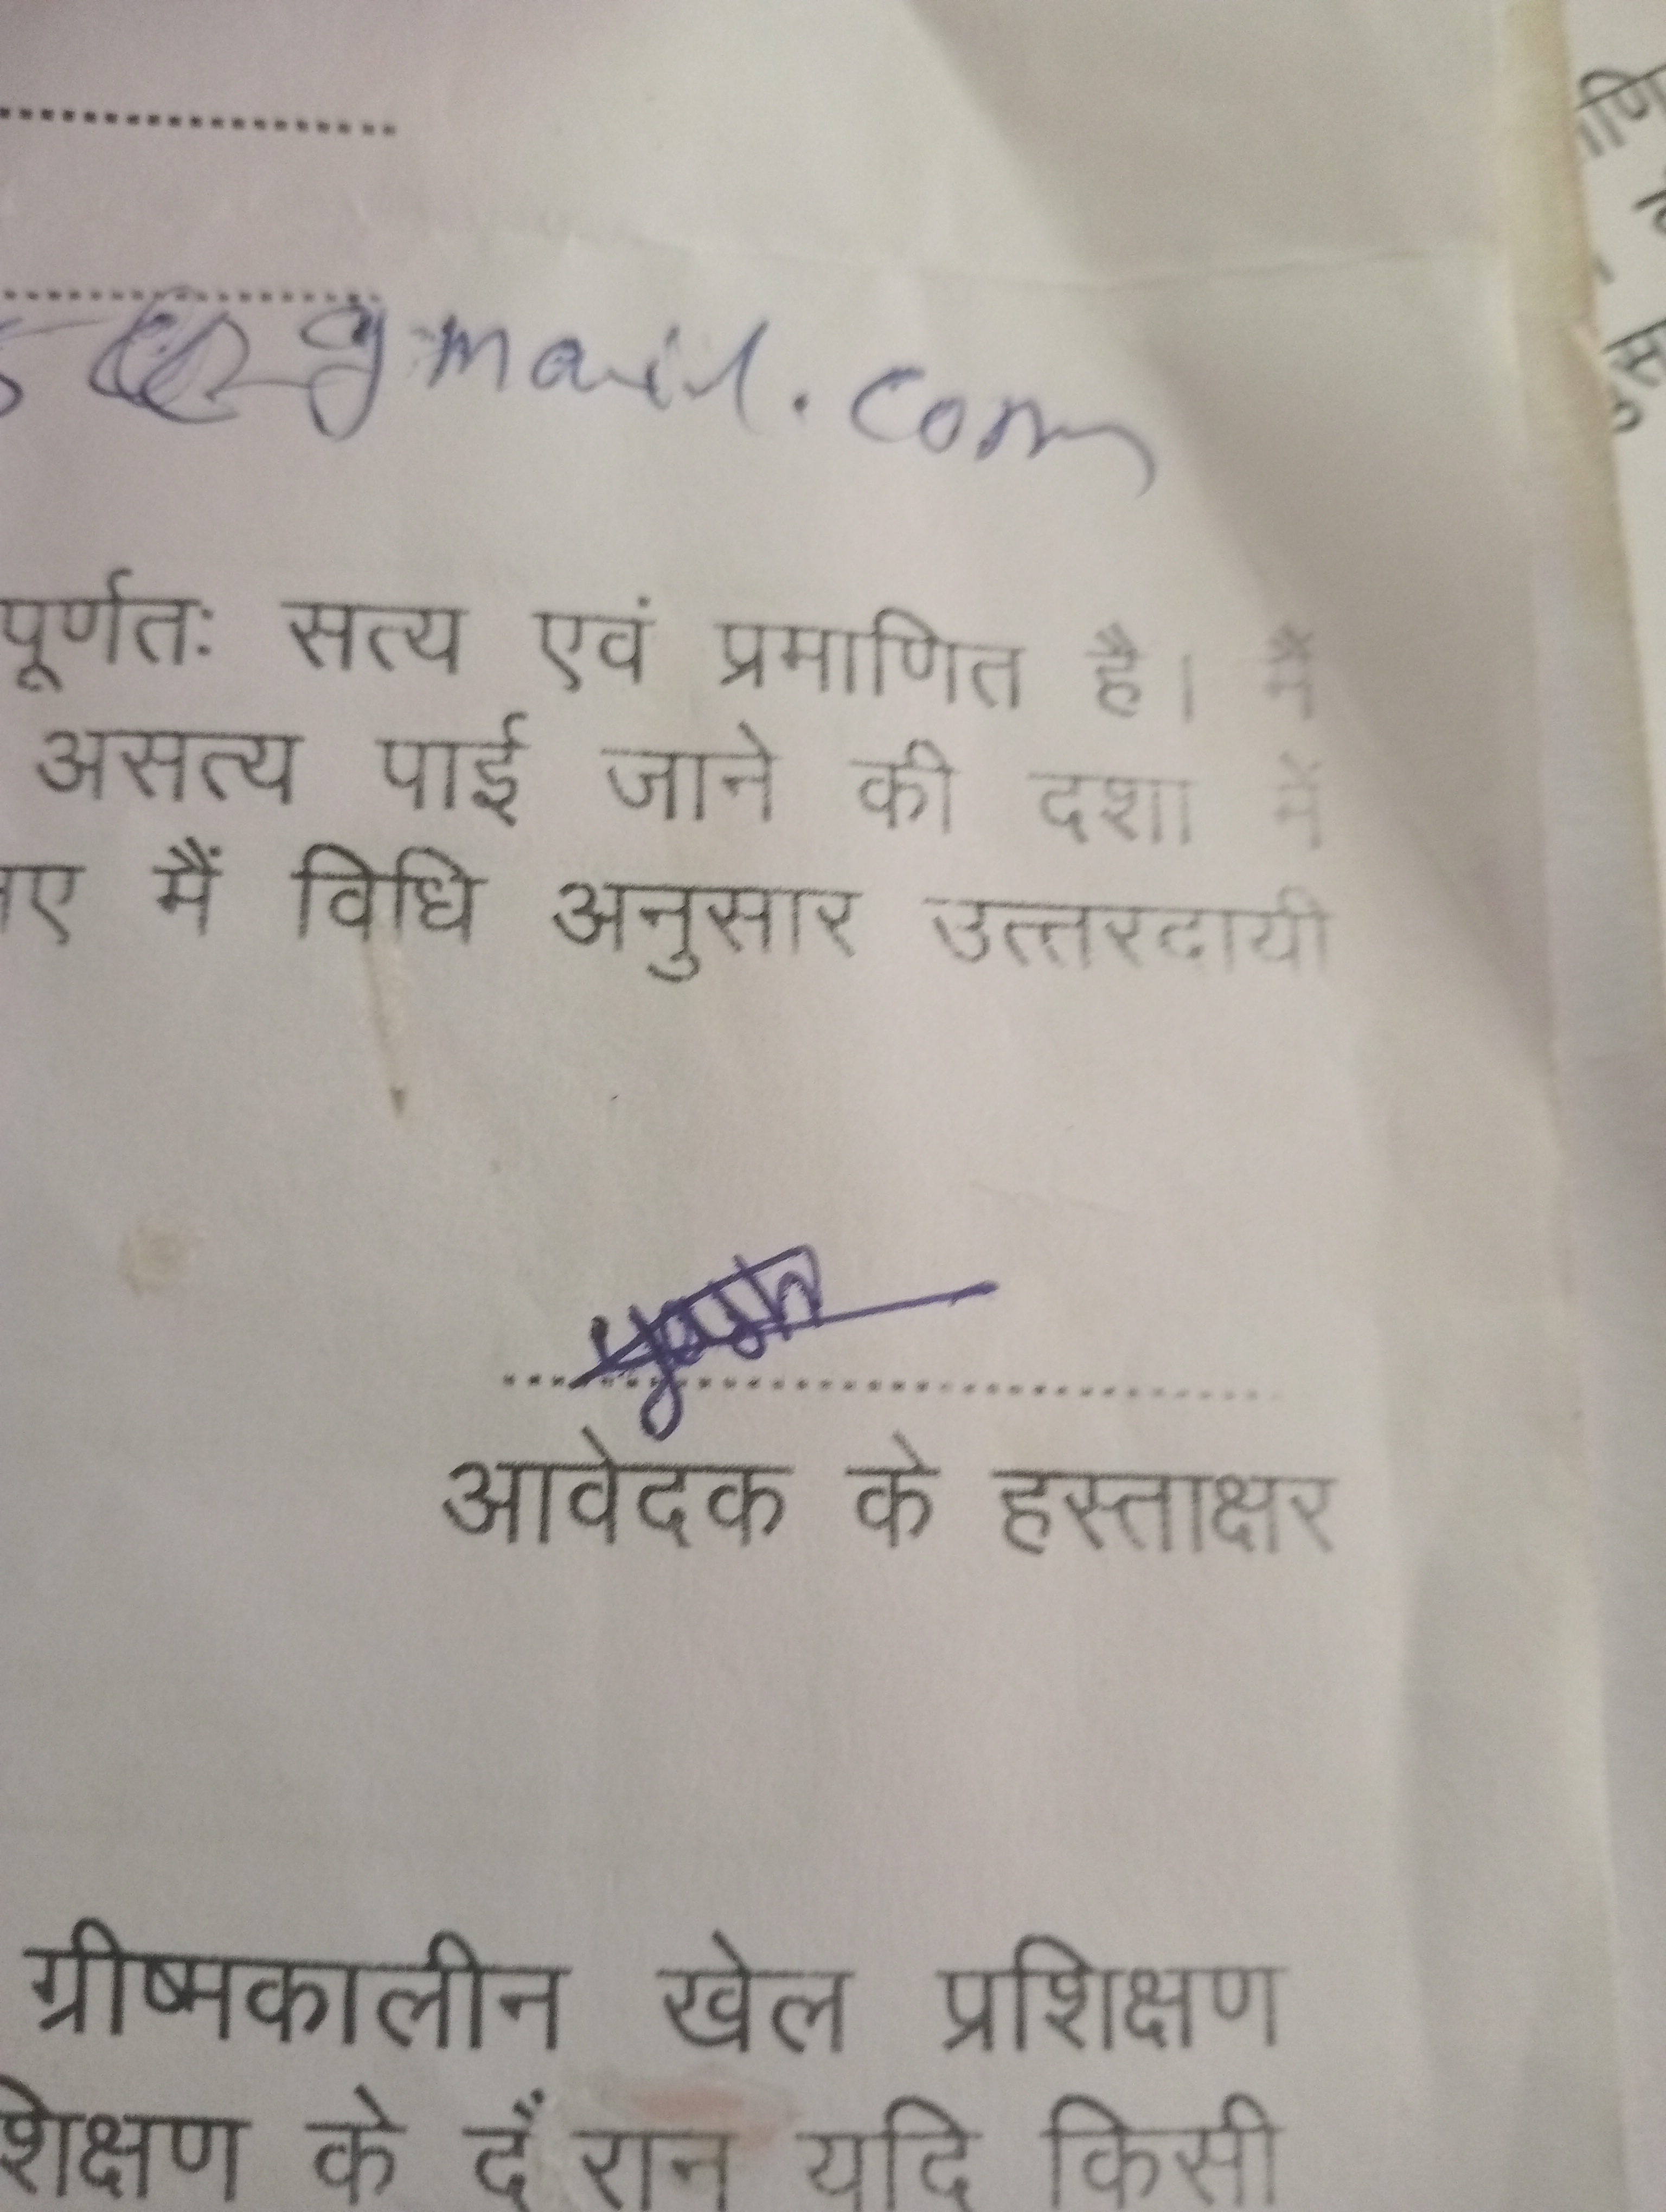 gmail.com
पूर्णतः सत्य एवं प्रमाणित है। मैं
असत्य पाई जाने की दशा में
मैं विधि अनुसार उत्तरदायी
yash
आवेदक के हस्ताक्षर
ग्रीष्मकालीन खेल प्रशिक्षण
शिक्षण के दौरान यदि किसी